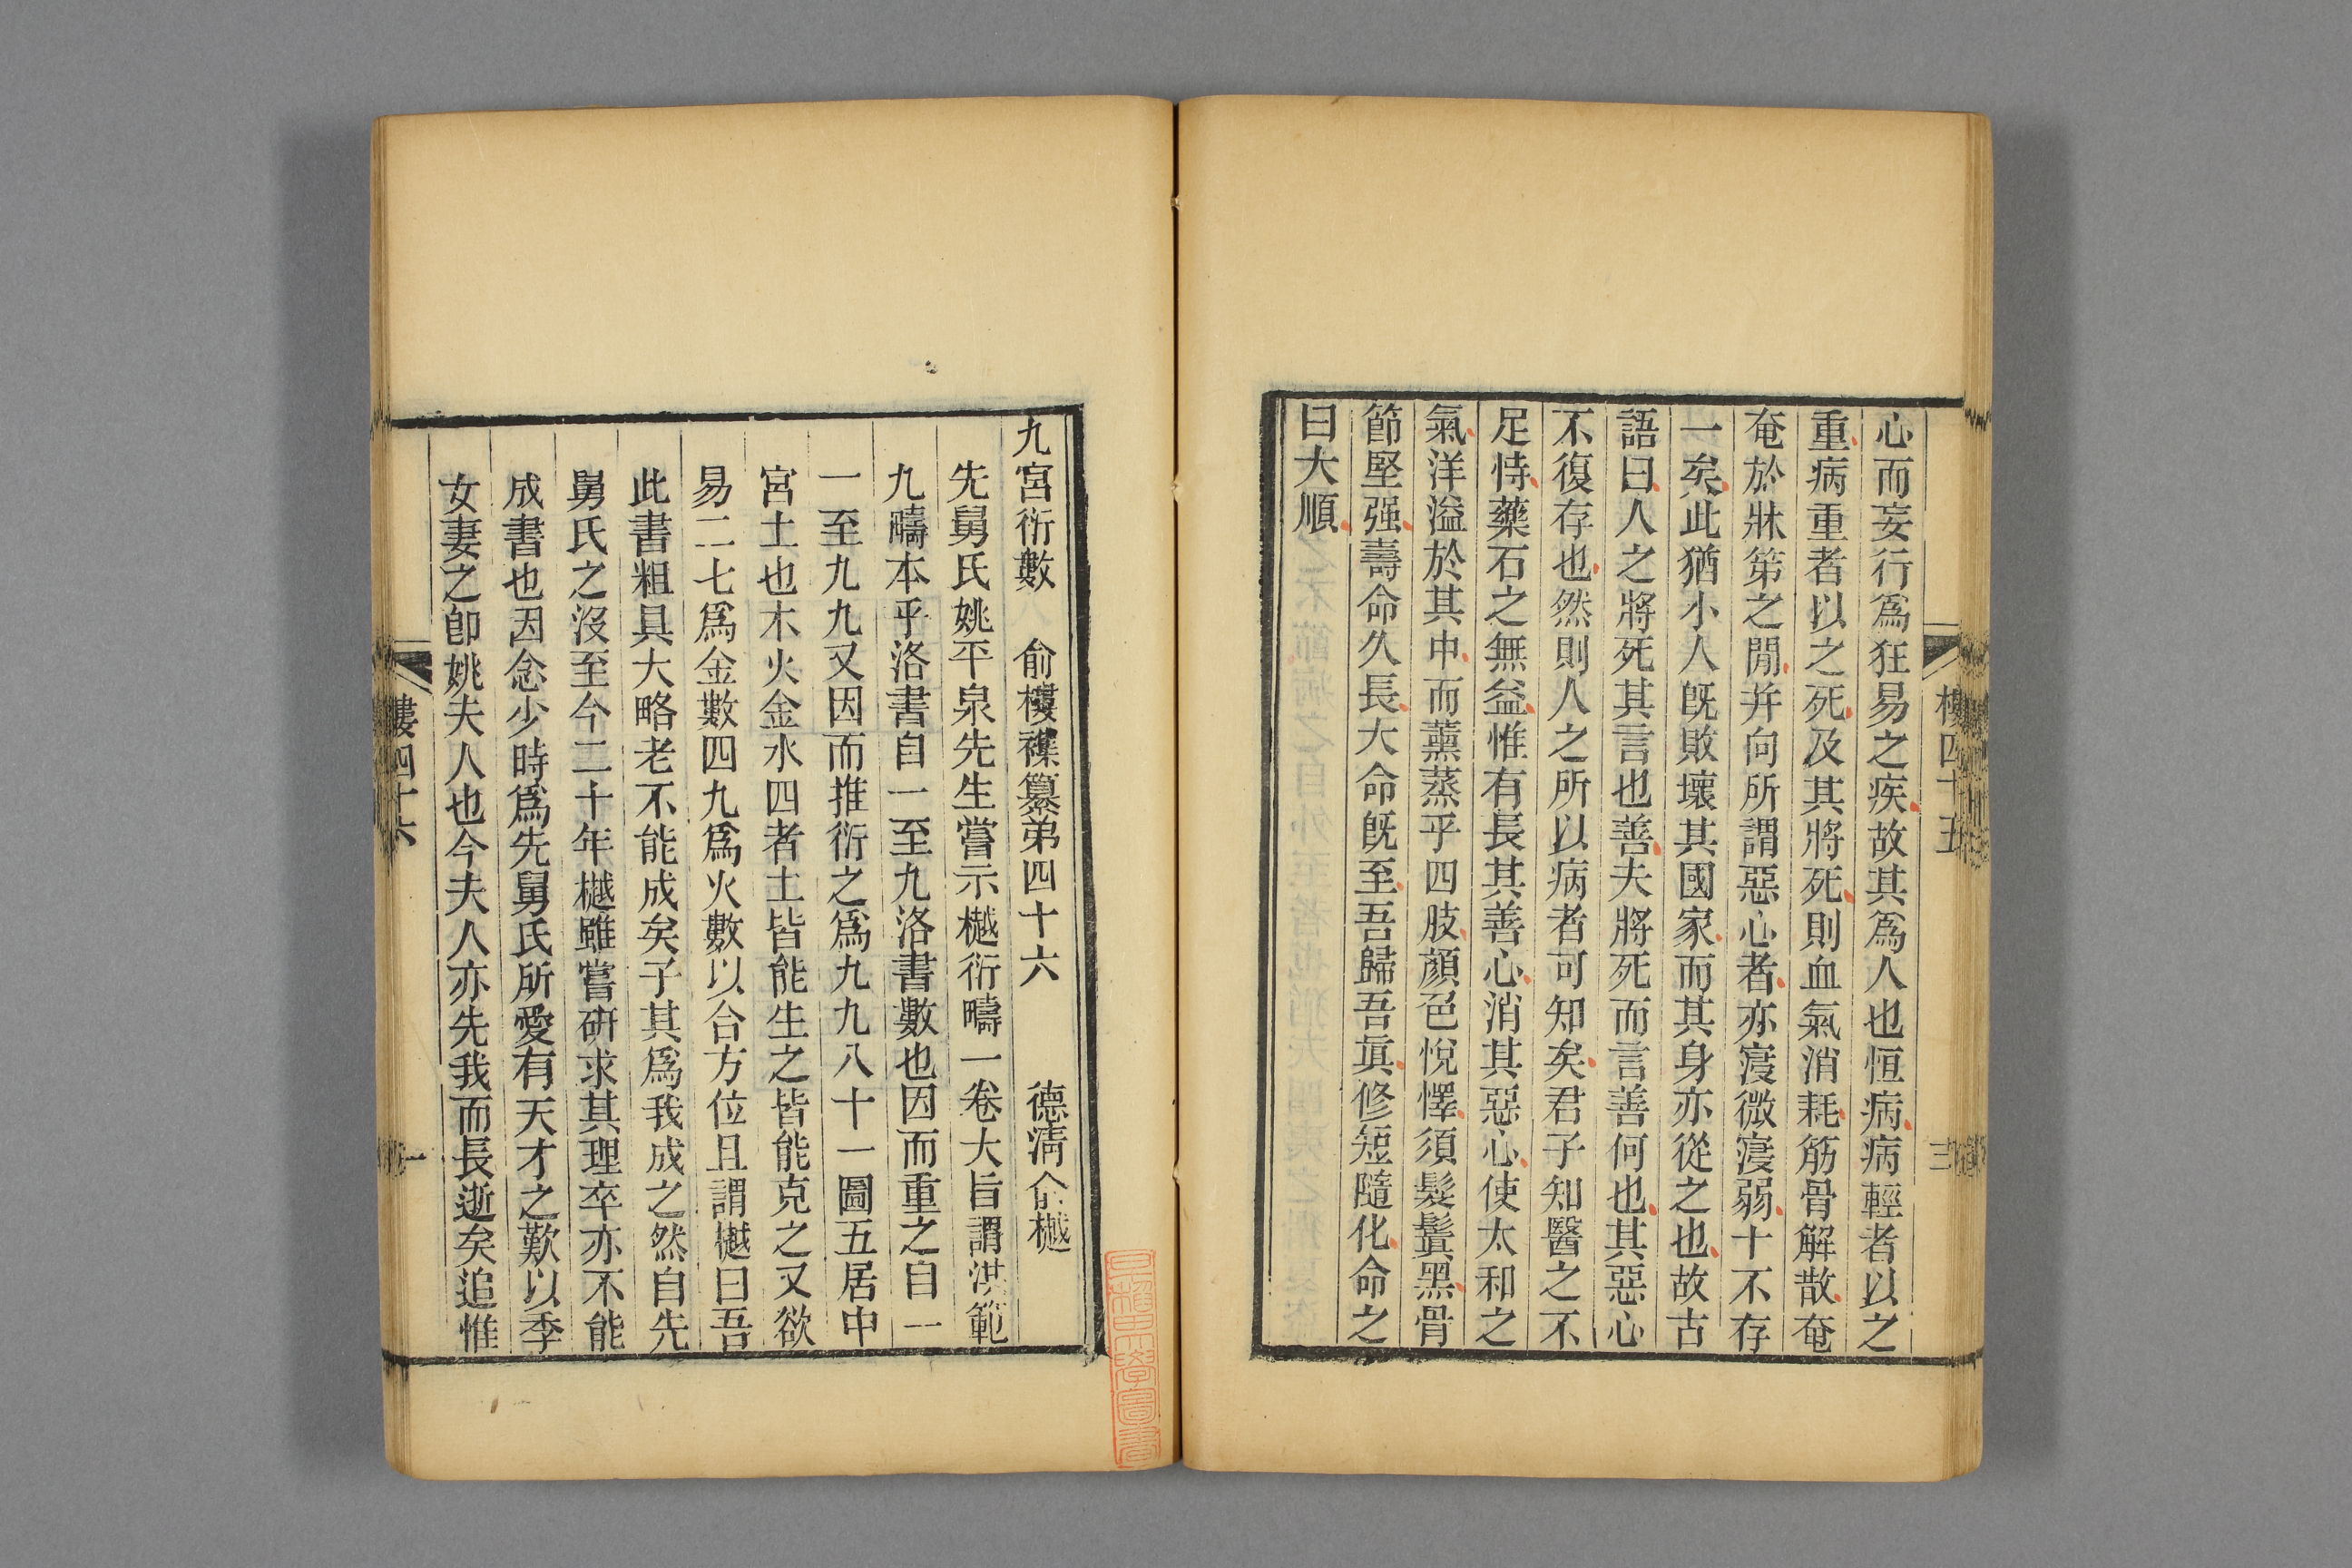 樓四十五
三
心而妄行爲狂易之疾故其爲人也恒病病輕者以之
重病重者以之死及其將死則血氣消耗筋骨解散奄
奄於牀笫之閒幷向所謂惡心者亦寖微寖弱十不存
一矣此猶小人旣敗壞其國家而其身亦從之也故古
語曰人之將死其言也善夫將死而言善何也其惡心
不復存也然則人之所以病者可知矣君子知醫之不
足恃藥石之無益惟有長其善心消其惡心使太和之
氣洋溢於其中而薰蒸乎四肢顏色悅懌須髮鬢黑骨
節堅强壽命久長大命旣至吾歸吾眞修短隨化命之
曰大順
九宮衍數 俞樓襍纂弟四十六 德淸俞樾
先舅氏姚平泉先生嘗示樾衍疇一卷大旨謂洪範
九疇本乎洛書自一至九洛書數也因而重之自一
一至九九又因而推衍之爲九九八十一圖五居中
宮土也木火金水四者土皆能生之皆能克之又欲
易二七爲金數四九爲火數以合方位且謂樾曰吾
此書粗具大略老不能成矣子其爲我成之然自先
舅氏之沒至今二十年樾雖嘗硏求其理卒亦不能
成書也因念少時爲先舅氏所愛有天才之歎以季
女妻之卽姚夫人也今夫人亦先我而長逝矣追惟
樓四十六
一